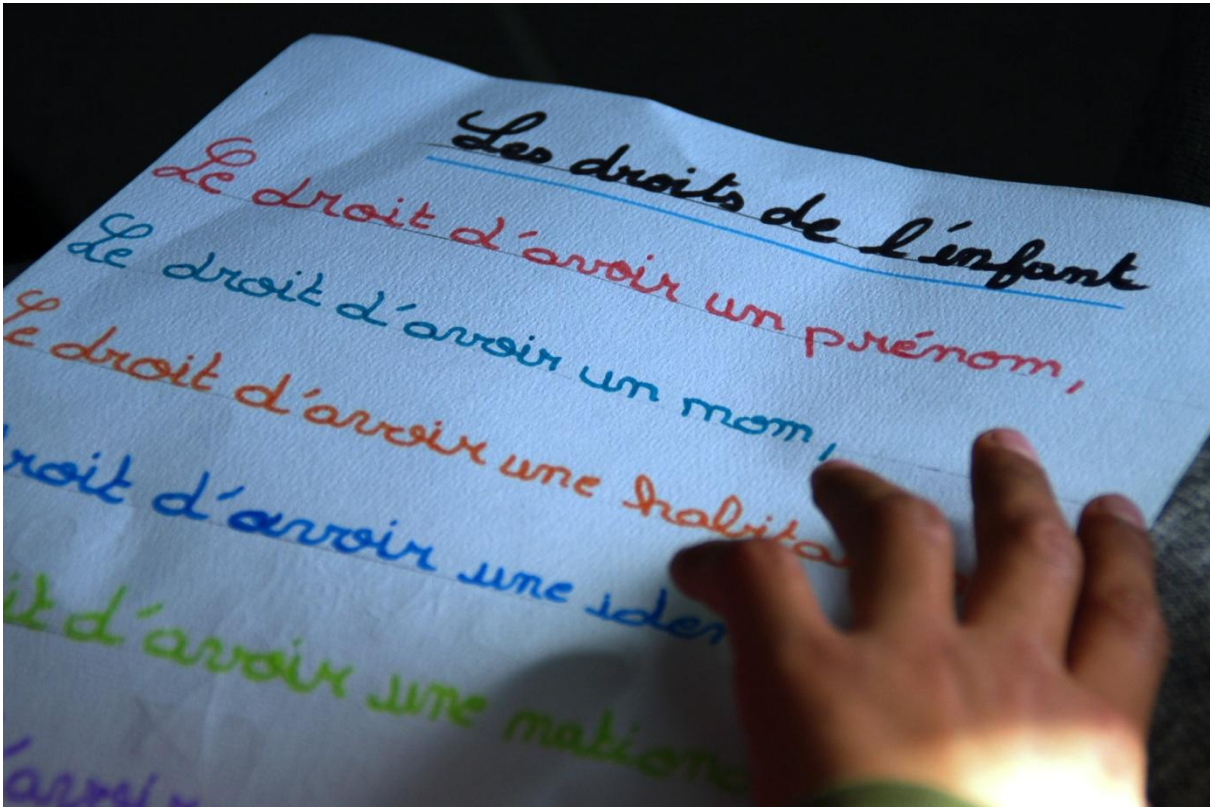 Les droits de l'enfant
Le droit d'avoir un prénom,
Le droit d'avoir un nom,
Le droit d'avoir une habita
roit d'avoir une iden
it d'avoir une nationa
'avoir